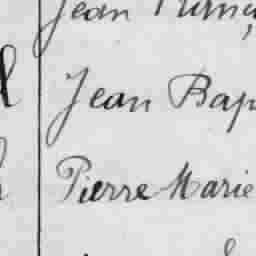 Jean
Jean Bap
Pierre Marie